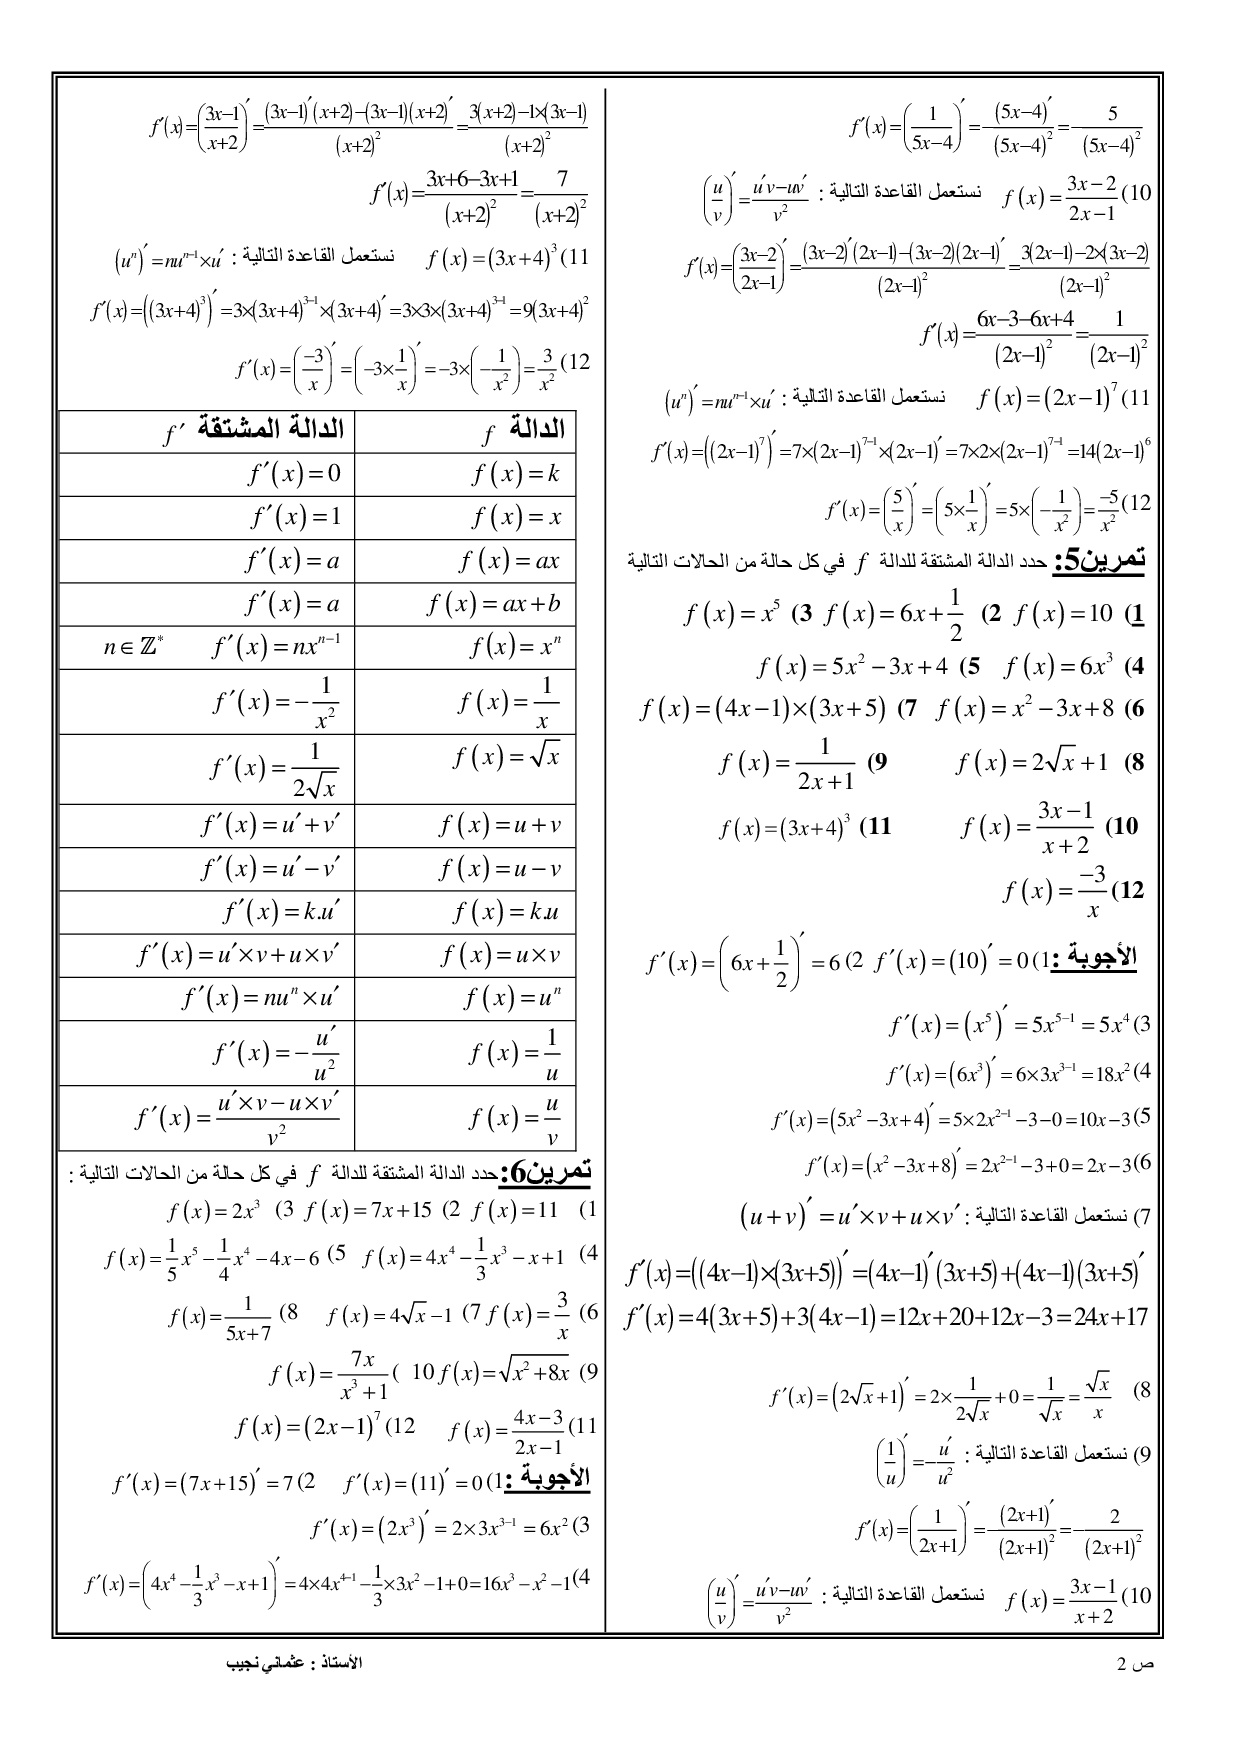 f′(x)=(1/(5x−4))′=−(5x−4)′/(5x−4)²=−5/(5x−4)²
10) f(x)=(3x−2)/(2x−1) نستعمل القاعدة التالية : (u/v)′=(u′v−uv′)/v²
f′(x)=((3x−2)/(2x−1))′=((3x−2)′(2x−1)−(3x−2)(2x−1)′)/(2x−1)²=(3(2x−1)−2×(3x−2))/(2x−1)²
f′(x)=(6x−3−6x+4)/(2x−1)²=1/(2x−1)²
11) f(x)=(2x−1)⁷ نستعمل القاعدة التالية : (uⁿ)′=nuⁿ⁻¹×u′
f′(x)=((2x−1)⁷)′=7×(2x−1)⁷⁻¹×(2x−1)′=7×2×(2x−1)⁷⁻¹=14(2x−1)⁶
12) f′(x)=(5/x)′=(5×1/x)′=5×(−1/x²)=−5/x²
تمرين5: حدد الدالة المشتقة للدالة f في كل حالة من الحالات التالية
1) f(x)=10 2) f(x)=6x+1/2 3) f(x)=x⁵
4) f(x)=6x³ 5) f(x)=5x²−3x+4
6) f(x)=x²−3x+8 7) f(x)=(4x−1)×(3x+5)
8) f(x)=2√x+1 9) f(x)=1/(2x+1)
10) f(x)=(3x−1)/(x+2) 11) f(x)=(3x+4)³
12) f(x)=−3/x
الأجوبة : 1) f′(x)=(10)′=0 2) f′(x)=(6x+1/2)′=6
3) f′(x)=(x⁵)′=5x⁵⁻¹=5x⁴
4) f′(x)=(6x³)′=6×3x³⁻¹=18x²
5) f′(x)=(5x²−3x+4)′=5×2x²⁻¹−3−0=10x−3
6) f′(x)=(x²−3x+8)′=2x²⁻¹−3+0=2x−3
7) نستعمل القاعدة التالية : (u+v)′=u′×v+u×v′
f′(x)=((4x−1)×(3x+5))′=(4x−1)′(3x+5)+(4x−1)(3x+5)′
f′(x)=4(3x+5)+3(4x−1)=12x+20+12x−3=24x+17
8) f′(x)=(2√x+1)′=2×1/(2√x)+0=1/√x=√x/x
9) نستعمل القاعدة التالية : (1/u)′=−u′/u²
f′(x)=(1/(2x+1))′=−(2x+1)′/(2x+1)²=−2/(2x+1)²
10) f(x)=(3x−1)/(x+2) نستعمل القاعدة التالية : (u/v)′=(u′v−uv′)/v²
f′(x)=((3x−1)/(x+2))′=((3x−1)′(x+2)−(3x−1)(x+2)′)/(x+2)²=(3(x+2)−1×(3x−1))/(x+2)²
f′(x)=(3x+6−3x+1)/(x+2)²=7/(x+2)²
11) f(x)=(3x+4)³ نستعمل القاعدة التالية : (uⁿ)′=nuⁿ⁻¹×u′
f′(x)=((3x+4)³)′=3×(3x+4)³⁻¹×(3x+4)′=3×3×(3x+4)³⁻¹=9(3x+4)²
12) f′(x)=(−3/x)′=(−3×1/x)′=−3×(−1/x²)=3/x²
الدالة f الدالة المشتقة f′
f(x)=k f′(x)=0
f(x)=x f′(x)=1
f(x)=ax f′(x)=a
f(x)=ax+b f′(x)=a
f(x)=xⁿ f′(x)=nxⁿ⁻¹ n∈ℤ*
f(x)=1/x f′(x)=−1/x²
f(x)=√x f′(x)=1/(2√x)
f(x)=u+v f′(x)=u′+v′
f(x)=u−v f′(x)=u′−v′
f(x)=k.u f′(x)=k.u′
f(x)=u×v f′(x)=u′×v+u×v′
f(x)=uⁿ f′(x)=nuⁿ×u′
f(x)=1/u f′(x)=−u′/u²
f(x)=u/v f′(x)=(u′×v−u×v′)/v²
تمرين6: حدد الدالة المشتقة للدالة f في كل حالة من الحالات التالية :
1) f(x)=11 2) f(x)=7x+15 3) f(x)=2x³
4) f(x)=4x⁴−1/3x³−x+1 5) f(x)=1/5x⁵−1/4x⁴−4x−6
6) f(x)=3/x 7) f(x)=4√x−1 8) f(x)=1/(5x+7)
9) f(x)=√(x²+8x) 10 ) f(x)=7x/(x³+1)
11) f(x)=(4x−3)/(2x−1) 12) f(x)=(2x−1)⁷
الأجوبة : 1) f′(x)=(11)′=0 2) f′(x)=(7x+15)′=7
3) f′(x)=(2x³)′=2×3x³⁻¹=6x²
4) f′(x)=(4x⁴−1/3x³−x+1)′=4×4x⁴⁻¹−1/3×3x²−1+0=16x³−x²−1
ص 2 الأستاذ : عثماني نجيب